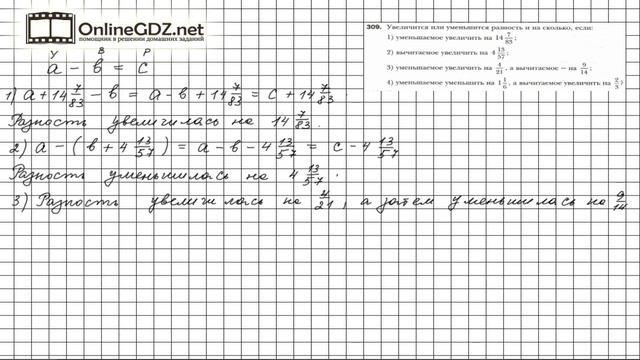 OnlineGDZ.net
помощник в решении домашних заданий
У В Р
a - в = с
1) a + 14 7/83 - в = a - в + 14 7/83 = с + 14 7/83
Разность увеличилась на 14 7/83.
2) a - (в + 4 13/57) = a - в - 4 13/57 = с - 4 13/57
Разность уменьшилась на 4 13/57.
3) Разность увеличилась на 4/21, а затем уменьшилась на 9/14
309. Увеличится или уменьшится разность и на сколько, если:
1) уменьшаемое увеличить на 14 7/83;
2) вычитаемое увеличить на 4 13/57;
3) уменьшаемое увеличить на 4/21, а вычитаемое — на 9/14;
4) уменьшаемое уменьшить на 1 1/6, а вычитаемое увеличить на 2/3?